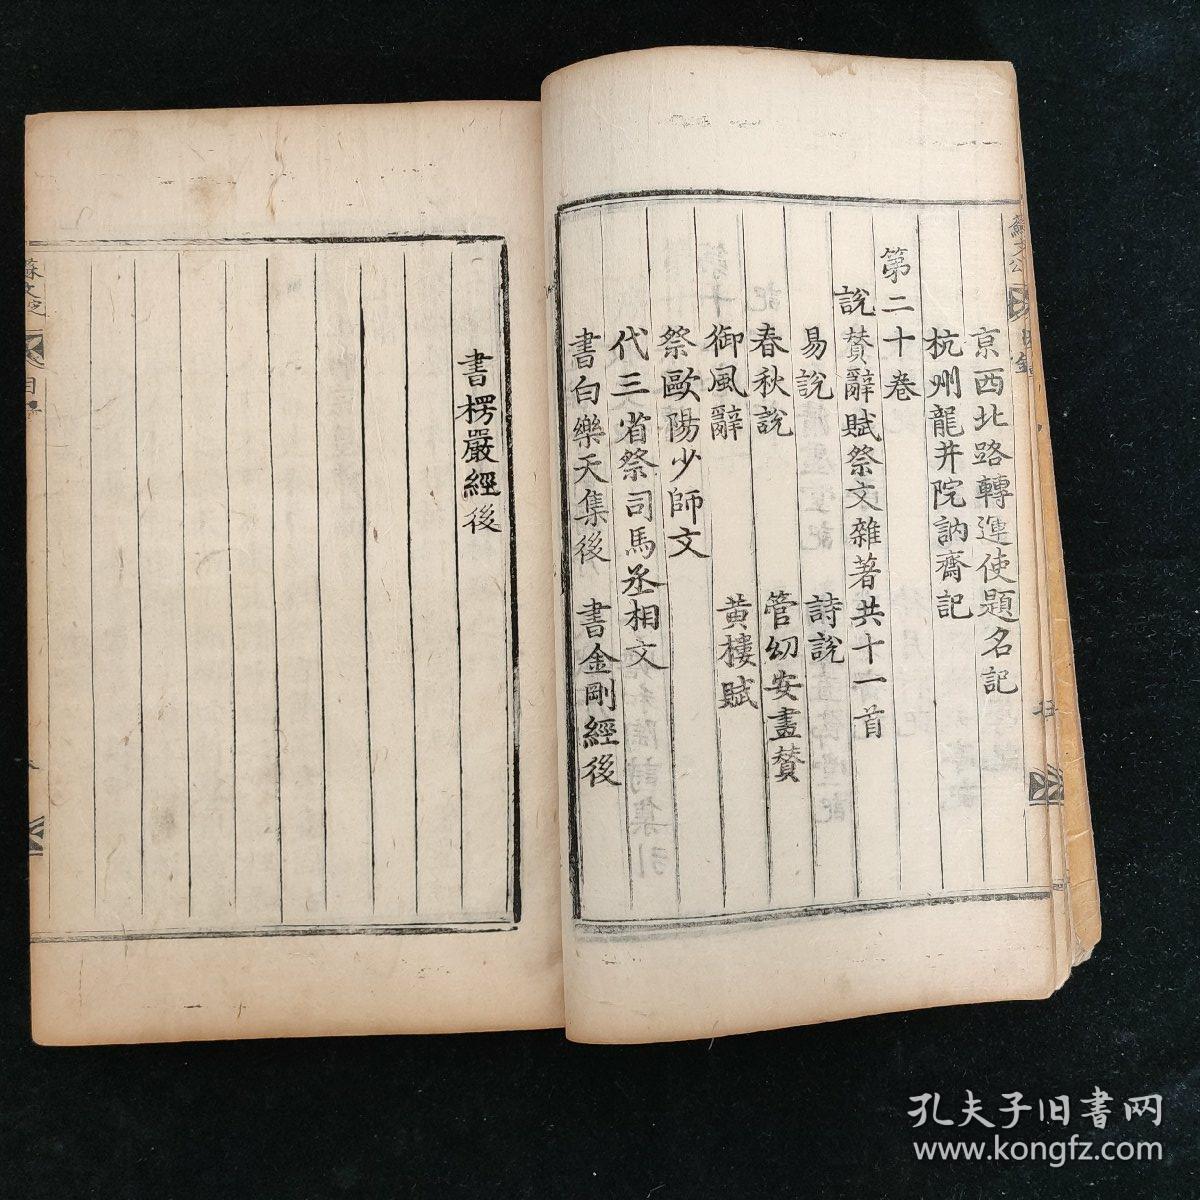 京西北路轉運使題名記
杭州龍井院訥齋記
第二十卷
說贊辭賦祭文雜著共十一首
易說 詩說
春秋說 管幼安畫贊
御風辭 黃樓賦
祭歐陽少師文
代三省祭司馬丞相文
書白樂天集後 書金剛經後
書楞嚴經後
孔夫子旧书网
www.kongfz.com